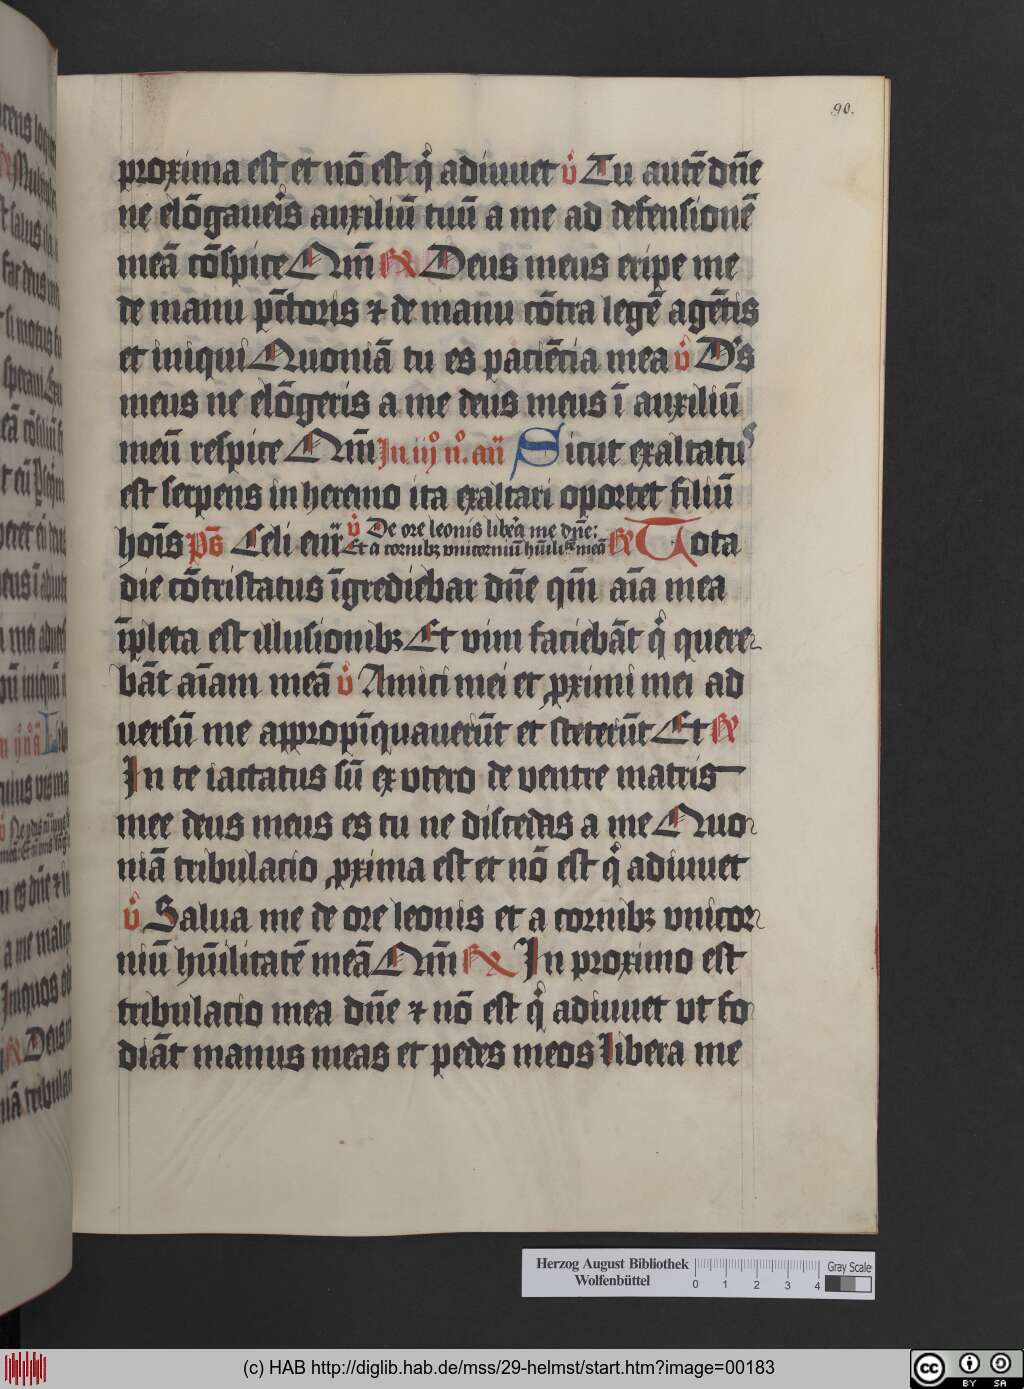 90.
proxima est et nō est qͥ adiuuet ℣ Tu autē dn̄e
ne elōgaueris auxiliū tuū a me ad defensionē
meā cōspice Qm̄ ℟ Deus meus eripe me
de manu pctōris ⁊ de manu cōtra legē agētis
et iniqui Quoniā tu es paciēcia mea ℣ D's
meus ne elōgeris a me deus meus ī auxiliū
meū respice Qm̄ In iijͦ nͦ. an̄ Sicut exaltatuꝰ
est serpens in heremo ita exaltari oportet filiū
hoīs Ps̄ Celi enr̄ ℣ De ore leonis libera me dn̄e:
Et a cornibꝫ vnicorniū hūilitͣtē meā ℟ Tota
die cōtristatus īgrediebar dn̄e qm̄ aīa mea
īpleta est illusionibꝫ Et vim faciebāt qͥ quere-
bāt aīam meā ℣ Amici mei et ꝓximi mei ad
uersū me appropīquauerūt et steterūt Et ℟
In te iactatus sū ex vtero de ventre matris
mee deus meus es tu ne discedas a me Quo-
niā tribulacio ꝓxima est et nō est qͥ adiuuet
℣ Salua me de ore leonis et a cornibꝫ vnicor-
niū hūilitatē meā Qm̄ ℟ In proximo est
tribulacio mea dn̄e ⁊ nō est qͥ adiuuet vt fo-
diāt manus meas et pedes meos libera me
Herzog August Bibliothek
Wolfenbüttel
0 1 2 3 4
Gray Scale
(c) HAB http://diglib.hab.de/mss/29-helmst/start.htm?image=00183
cc BY SA